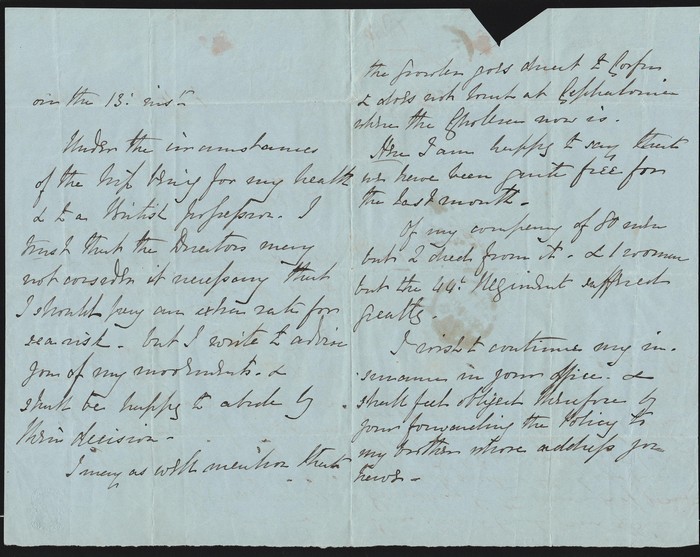 on the 13: inst
Under the circumstances
of the trip being for my health
& to a British possession. I
trust that the Directors may
not consider it necessary that
I should pay an extra rate for
sea risk. but I write to advise
you of my movements. &
shall be happy to abide by
their decision.
I may as well mention that
the goes direct to Corfu
& does not touch at Cephalonia
where the Cholera now is.
Here I am happy to say that
we have been quite free for
the last month.
Of my company of 80 men
but 2 died from it. & 1 woman
but the 44t Regiment suffered
greatly.
I wish to continue my in-
surance in your office. &
shall feel obliged therefore by
your forwarding the Policy to
my brother whose address you
have.